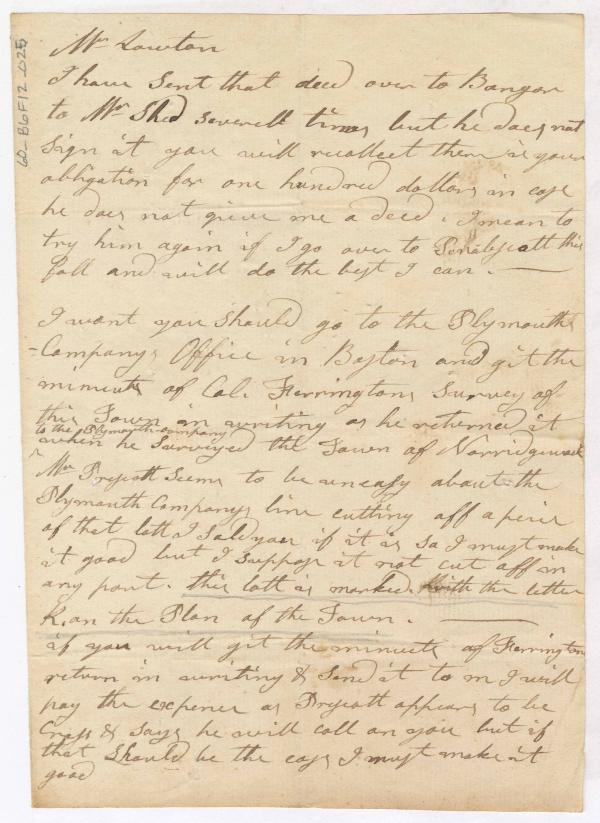 60_B6F12_025
Mr Lowton
I have Sent that deed over to Bangor
to Mr Shed Severell times but he does not
Sign it you will recollect there is your
obligation for one hundred dollars in case
he does not gieve me a deed. I mean to
try him again if I go over to Penobscott this
fall and will do the best I can.
I want you should go to the Plymouth
Companys Office in Boston and git the
minuets of Col. Ferringtons Survey of
this Town in writing as he returned it
to the Plymouth Company
when he Surveyed the Town of Norridgewalk
Mr Prescott Seems to be uneasy about the
Plymouth Companys line cutting off a peice
of that lott I Sold you if it is So I must make
it good but I suppose it not cut off in
any part. this lott is marked with the letter
K. on the Plan of the Town.
if you will git the minuets of Ferringtons
return in writing & Send it to m I will
pay the expence as Prescott appears to be
Cross & Says he will call on you but if
that Should be the case I must make it
good